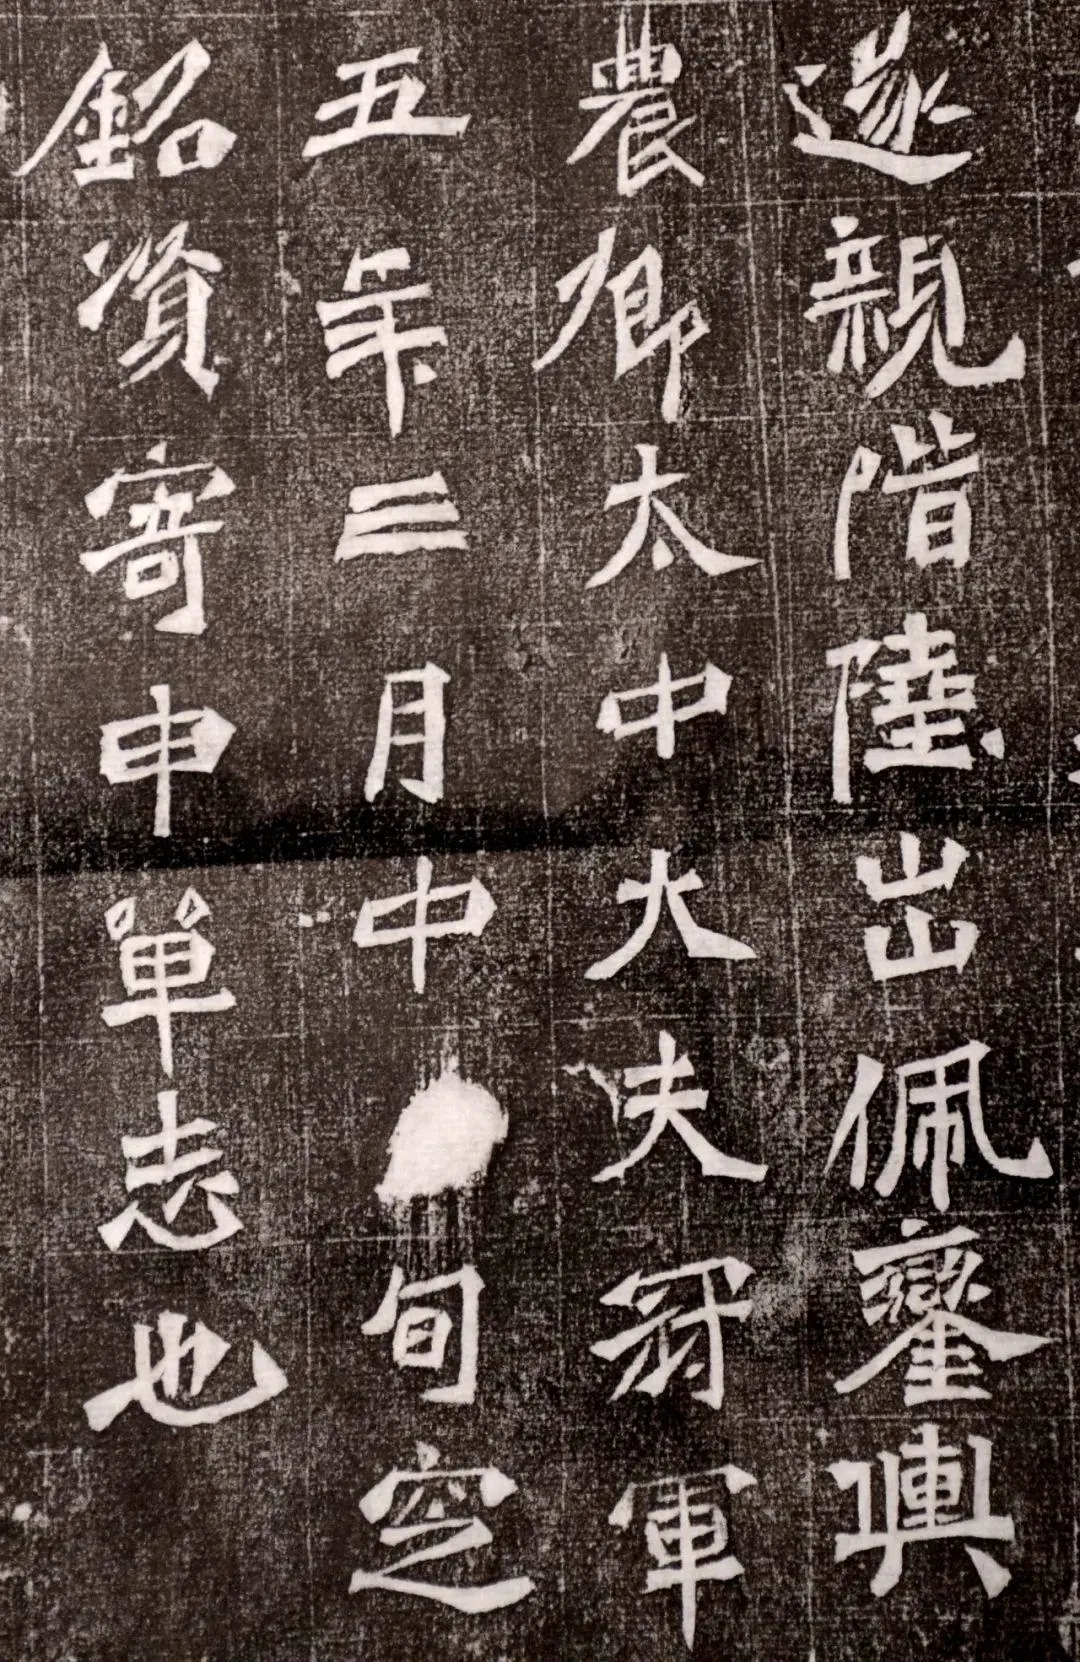 遂親階陛出佩鑾輿
農卿太中大夫冠軍
五年三月中旬窆
銘資寄申單志也